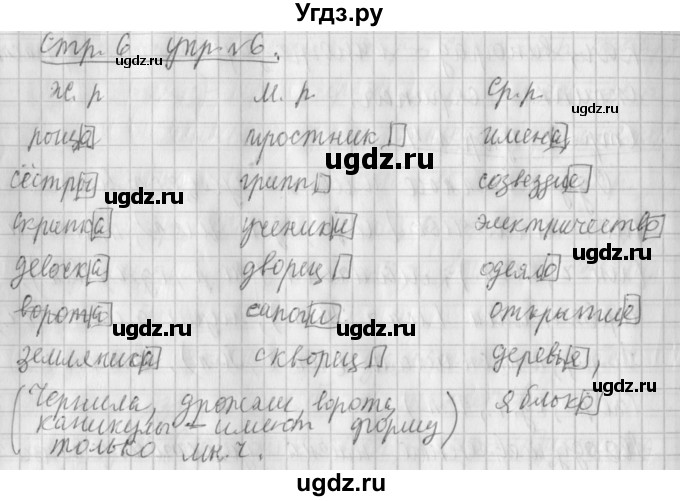 Угдз.ру
Стр. 6 упр №6.
ж. р м. р ср. р.
роща тростник имена
сёстры грипп созвездие
скрипка ученики электричество
девочка дворец одеяло
ворота сапоги открытие
земляника скворец деревья,
(Чернила, дрожжи, ворота, яблоко
каникулы - имеют форму)
только мн. ч.
ugdz.ru
ugdz.ru
ugdz.ru
ugdz.ru
ugdz.ru
ugdz.ru
ugdz.ru
ugdz.ru
ugdz.ru
ugdz.ru
ugdz.ru
ugdz.ru